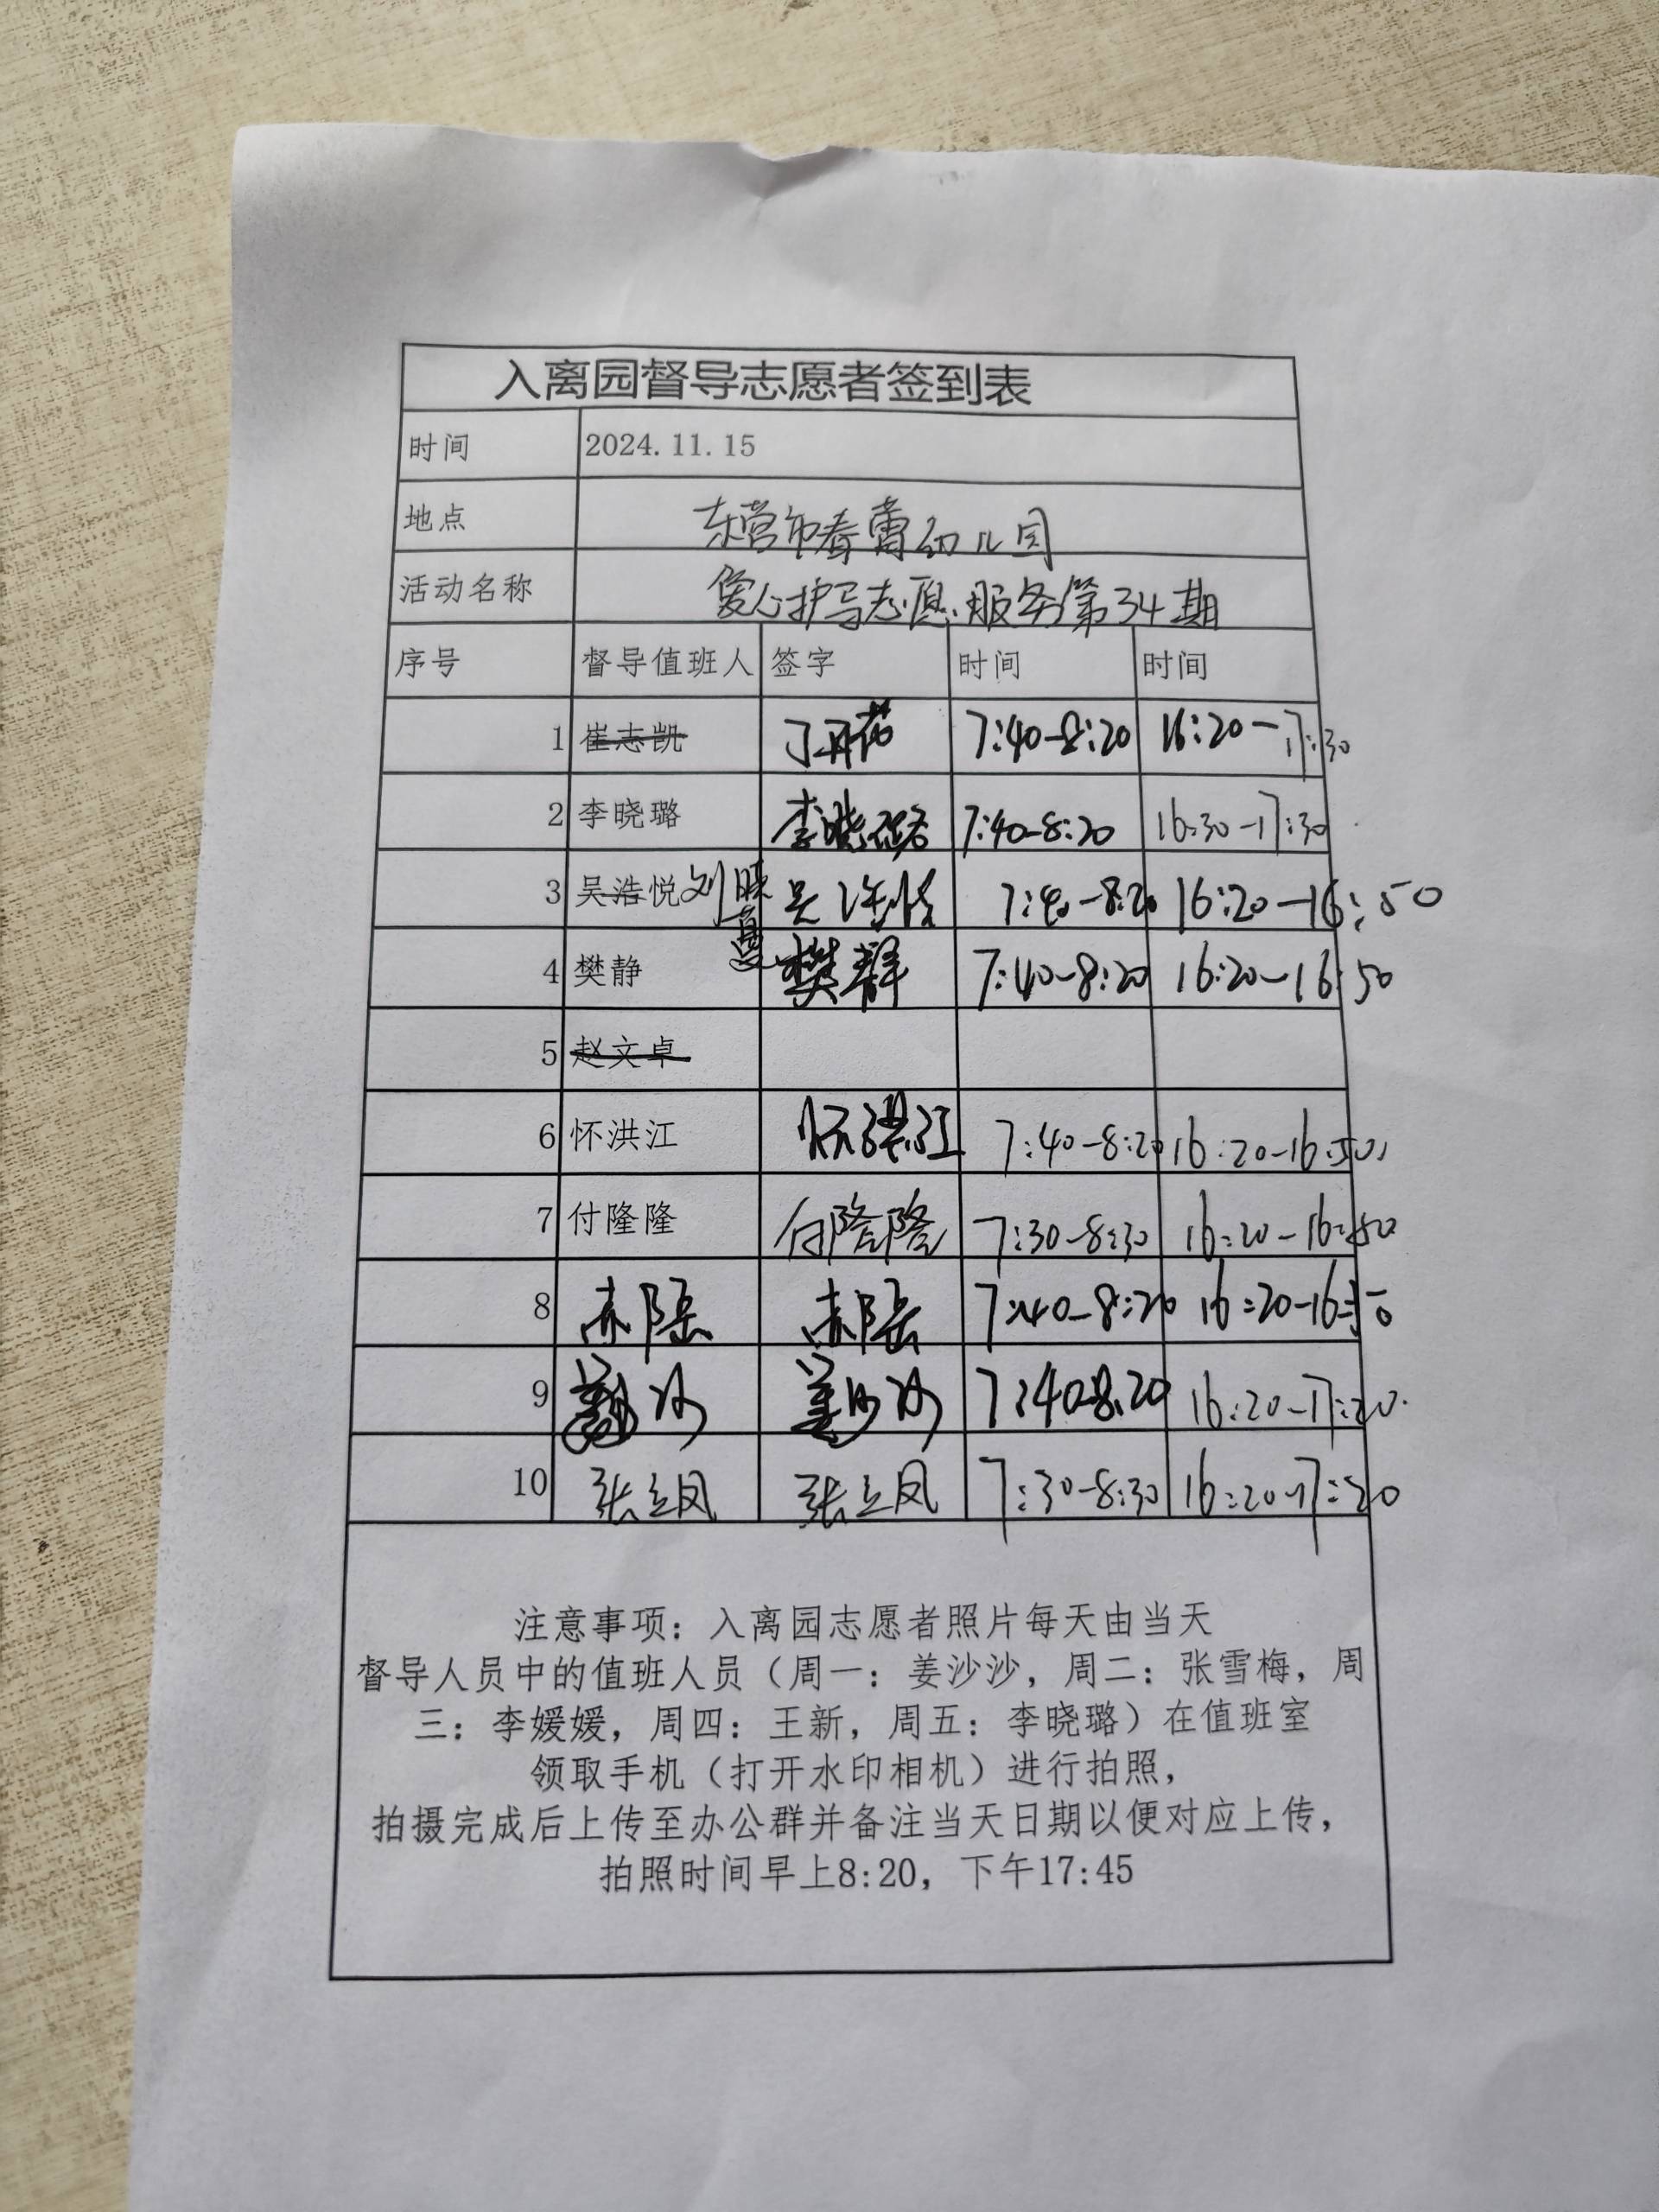 入离园督导志愿者签到表
时间 2024.11.15
地点 东营市春蕾幼儿园
活动名称 爱心护导志愿服务第34期
序号 督导值班人 签字 时间 时间
1 崔志凯 丁丹茹 7:40-8:20 16:20-17:30
2 李晓璐 李晓璐 7:40-8:20 16:30-17:30
3 吴浩悦 刘映夏 吴浩悦 7:40-8:20 16:20-16:50
4 樊静 樊静 7:40-8:20 16:20-16:50
5 赵文卓
6 怀洪江 怀洪江 7:40-8:20 16:20-16:50
7 付隆隆 付隆隆 7:30-8:30 16:20-16:50
8 7:40-8:20 16:20-16:50
9 姜沙沙 7:40-8:20 16:20-17:20
10 张立凤 张立凤 7:30-8:30 16:20-17:20
注意事项：入离园志愿者照片每天由当天
督导人员中的值班人员（周一：姜沙沙，周二：张雪梅，周
三：李媛媛，周四：王新，周五：李晓璐）在值班室
领取手机（打开水印相机）进行拍照，
拍摄完成后上传至办公群并备注当天日期以便对应上传，
拍照时间早上8:20，下午17:45